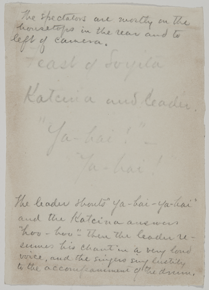 The spectators are mostly on the
housetops in the rear and to
left of camera.
Feast of
Katcina and leader.
"Ya-hai!"
Ya-hai!
The leader shouts "ya-hai-ya-hai"
and the Katcina answers
"hoo-hoo": then the leader re-
sumes his chant in a very loud
voice, and the singers sing lustily
to the accompaniment of the drum.